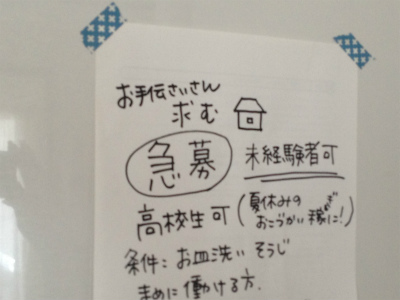 お手伝さいさん
求む
急募 未経験者可
高校生可(夏休みの
おこづかい稼ぎに!)
条件: お皿洗い そうじ
まめに働ける方.